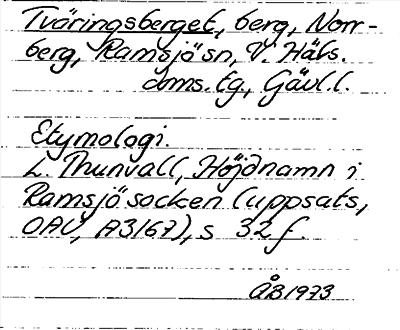 Tväringsberget, berg, Norr-
berg, Ramsjö sn, V. Häls.
doms. tg, Gävl. l.
Etymologi.
L. Thunvall, Höjdnamn i
Ramsjö socken (uppsats,
OAU, A3167), s 32 f.
ÅB 1973